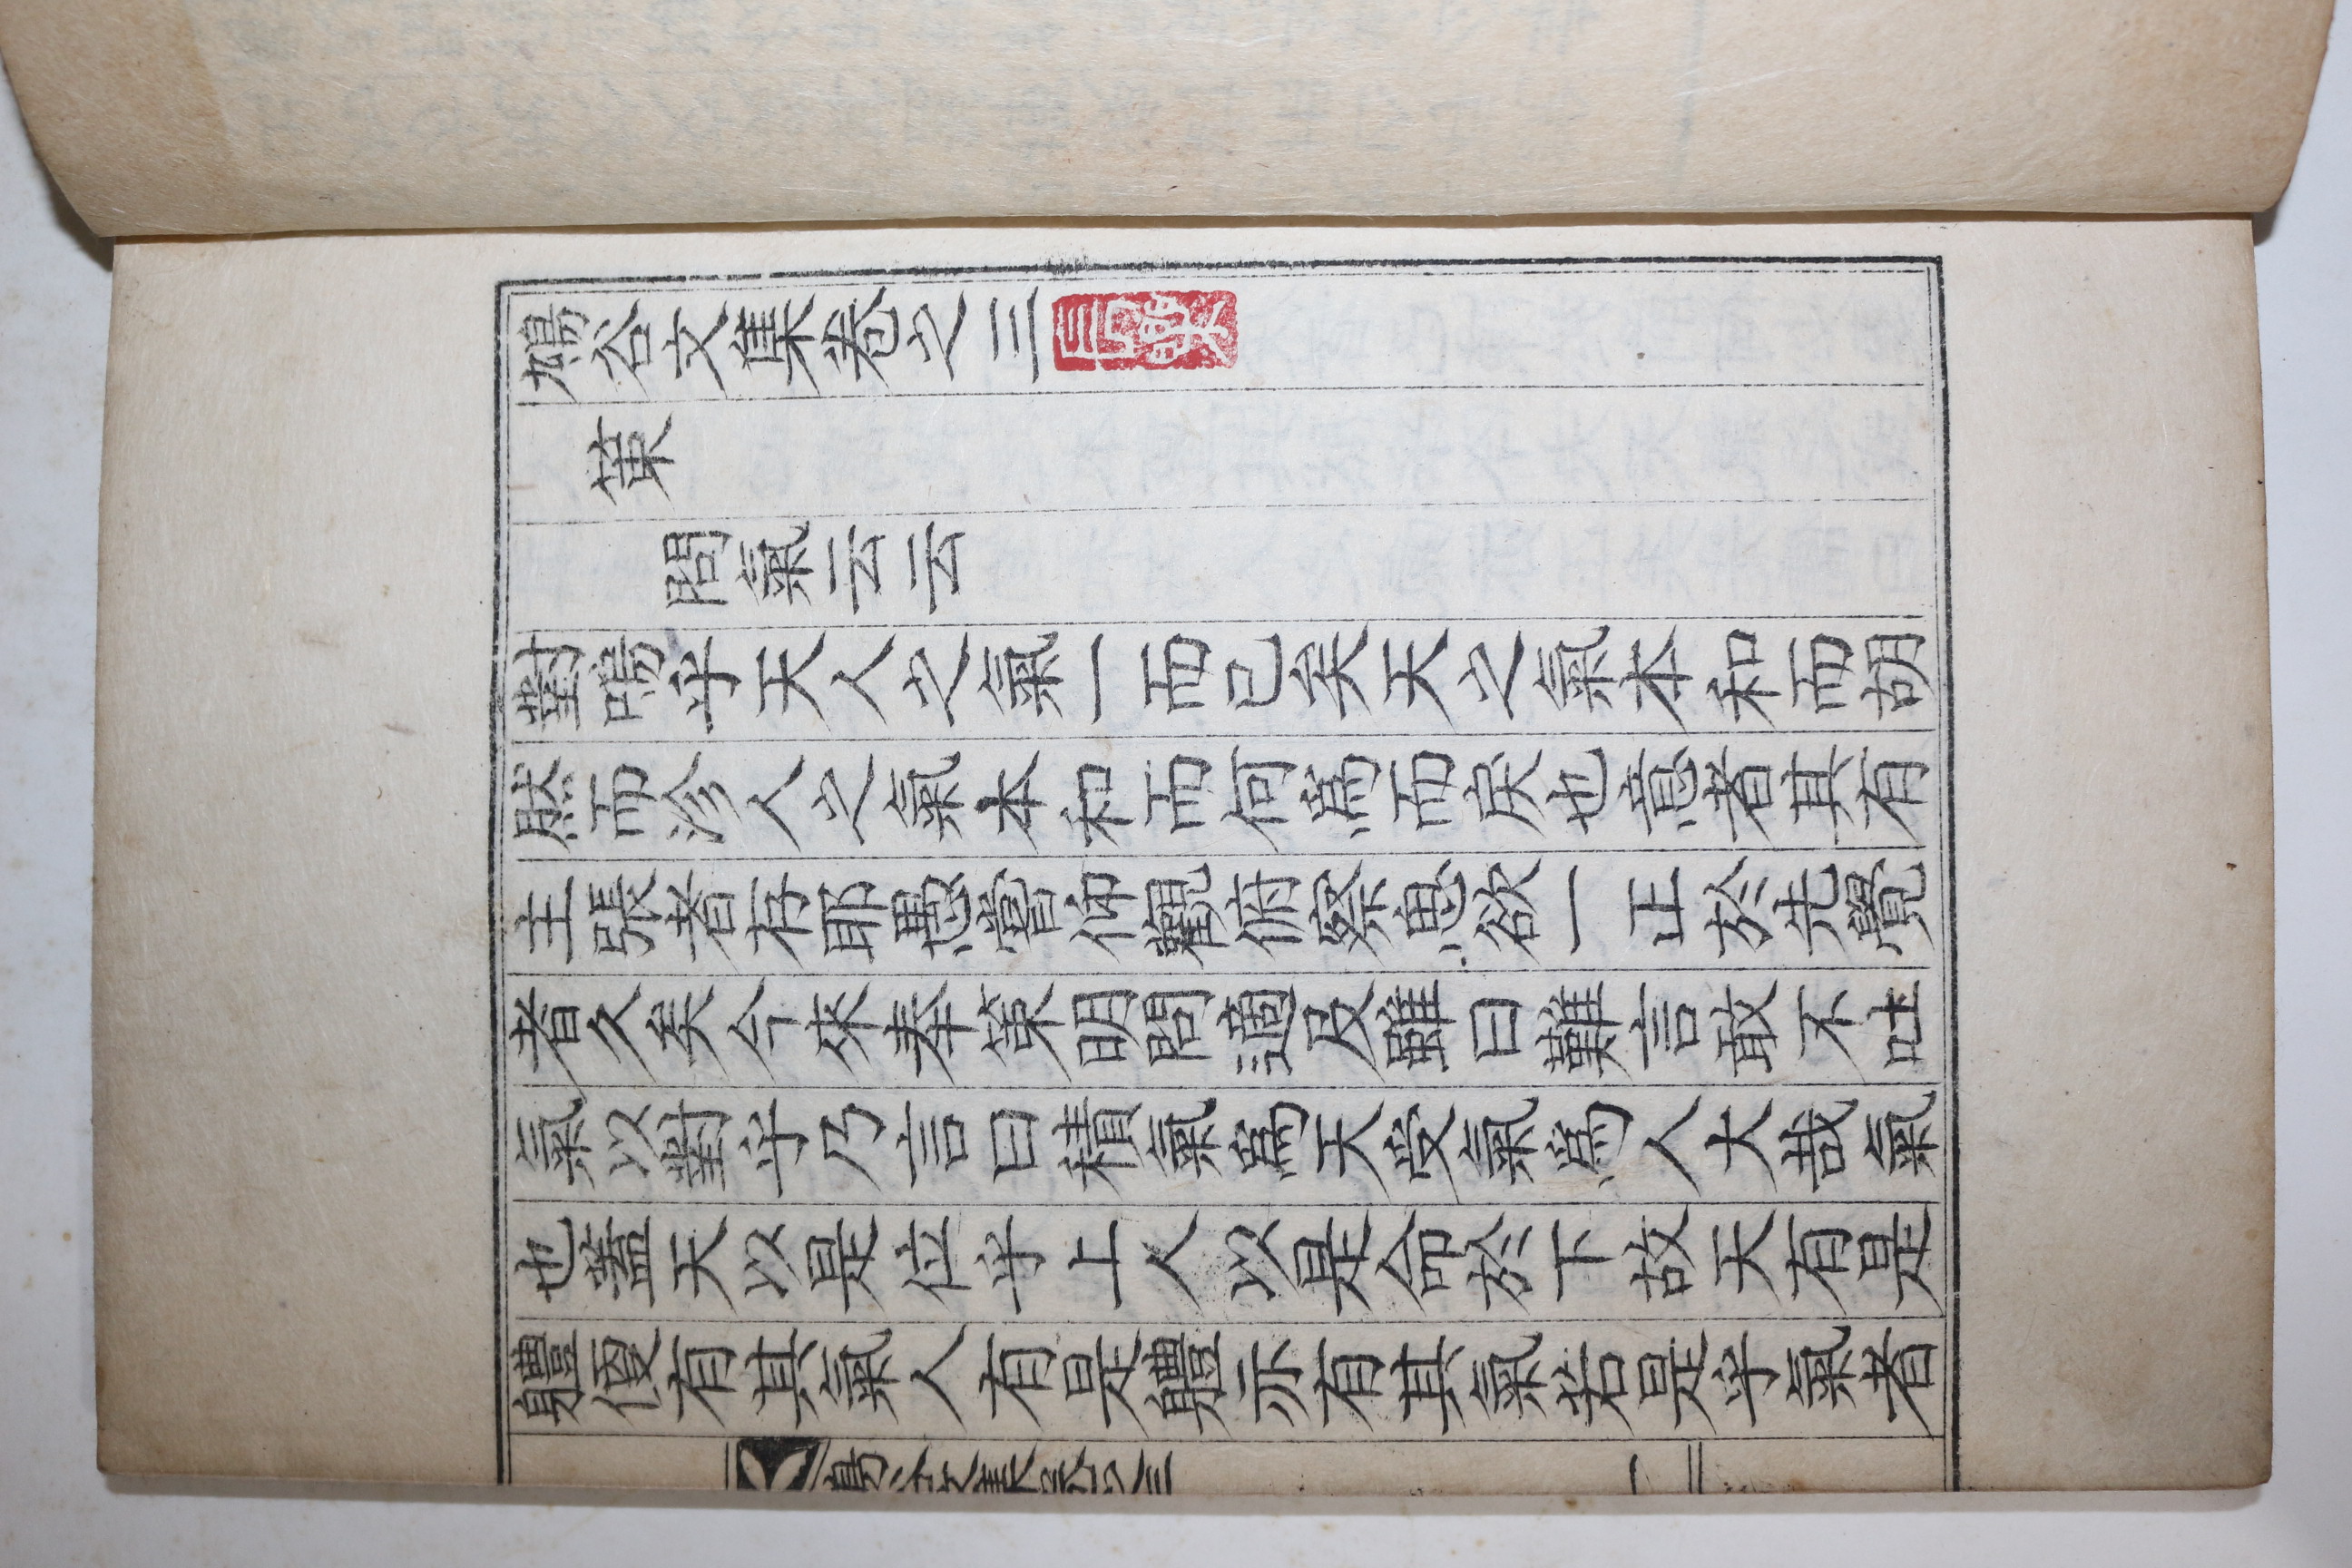 鳩谷文集卷之三
策
問氣云云
對嗚乎天人之氣一而已矣天之氣本和而胡
然而沴人之氣本和而何爲而戾也意者其有
主張者存耶愚嘗仰觀俯察思欲一正於先覺
者久矣今來奉策明問適及雖曰難言敢不吐
氣以對乎乃言曰積氣爲天受氣爲人大哉氣
也蓋天以是位乎上人以是命於下故天有是
體便有其氣人有是體亦有其氣若是乎氣者